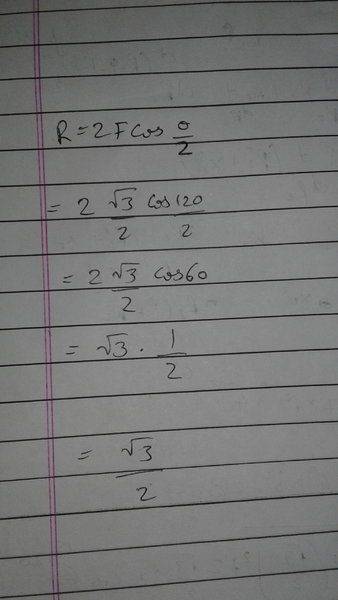 R = 2F cos θ/2
= 2 √3/2 cos 120/2
= 2 √3/2 cos 60
= √3 · 1/2
= √3/2